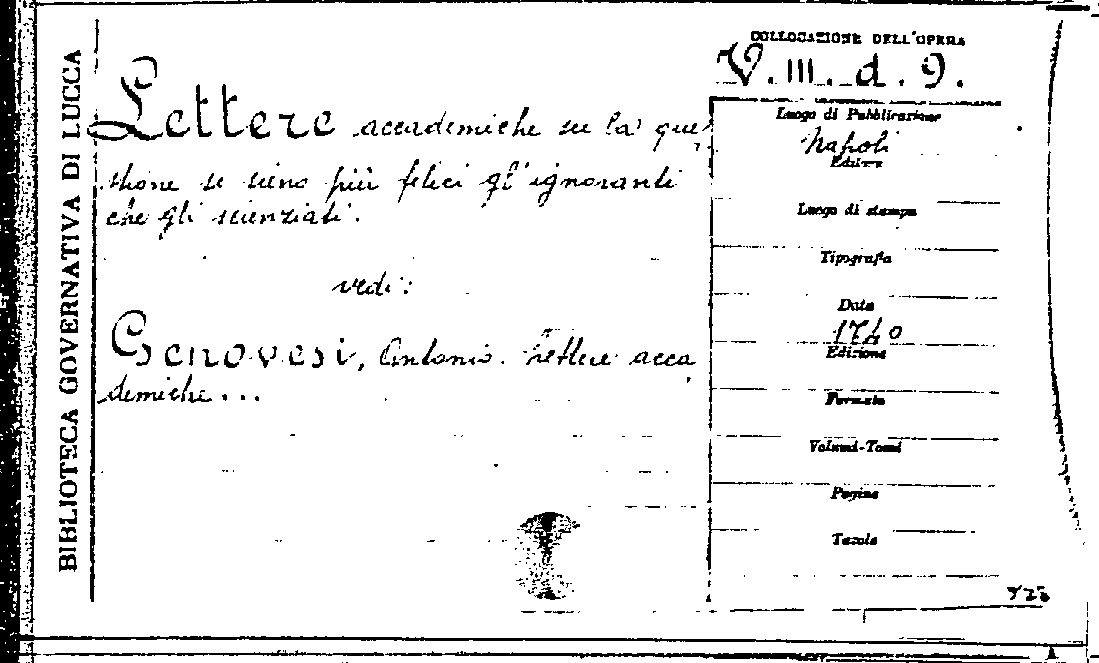 BIBLIOTECA GOVERNATIVA DI LUCCA
COLLOCAZIONE DELL'OPERA
V. III. d. 9.
Lettere accademiche su la que,
stione se sieno più felici gl'ignoranti
che gli scienziati.
vedi:
Genovesi, Antonio. Lettere acca
demiche...
Luogo di Pubblicazione
Napoli
Editore
Luogo di stampa
Tipografia
Data
1740
Edizione
Formato
Volumi-Tomi
Pagine
Tavole